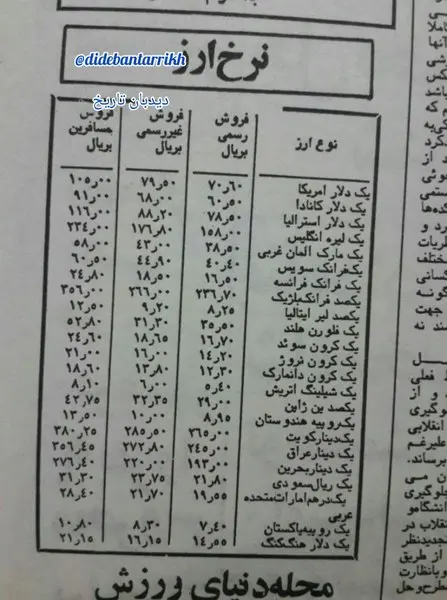 @didebantarrikh
نرخ ارز
دیدبان تاریخ
نوع ارز فروش رسمی بریال فروش غیررسمی بریال فروش مسافرین بریال
یک دلار امریکا ۷۰٫۶۰ ۷۹٫۵۰ ۱۰۵٫۰۰
یک دلار کانادا ۶۰٫۵۰ ۶۸٫۰۰ ۹۱٫۰۰
یک دلار استرالیا ۷۸٫۵۰ ۸۸٫۲۰ ۱۱۶٫۰۰
یک لیره انگلیس ۱۵۸٫۰۰ ۱۷۶٫۸۰ ۲۳۴٫۰۰
یک مارک آلمان غربی ۳۸٫۵۰ ۴۳٫۰۰ ۵۸٫۰۰
یک فرانک سویس ۴۰٫۴۰ ۴۴٫۹۰ ۶۰٫۵۰
یک فرانک فرانسه ۱۶٫۵۰ ۱۸٫۵۰ ۲۴٫۸۰
یکصد فرانک بلژیک ۲۳۶٫۷۰ ۲۶۶٫۰۰ ۳۵۶٫۰۰
یکصد لیر ایتالیا ۸٫۲۵ ۹٫۲۰ ۱۲٫۵۰
یک فلورن هلند ۳۵٫۵۰ ۳۱٫۳۰ ۵۲٫۸۰
یک کرون سوئد ۱۶٫۷۰ ۱۸٫۶۵ ۲۴٫۶۰
یک کرون نروژ ۱۴٫۲۰ ۱۶٫۰۰ ۲۱٫۰۰
یک کرون دانمارک ۱۲٫۳۰ ۱۳٫۸۰ ۱۸٫۶۰
یک شیلینگ اتریش ۵٫۴۰ ۶٫۰۰ ۸٫۱۰
یکصد ین ژاپن ۲۹٫۰۰ ۳۲٫۳۵ ۴۲٫۷۵
یک روپیه هندوستان ۸٫۹۵ ۱۰٫۰۰ ۱۳٫۵۰
یک دینار کویت ۲۶۵٫۰۰ ۲۸۵٫۵۰ ۳۸۰٫۲۵
یک دینار عراق ۲۴۵٫۰۰ ۲۷۲٫۸۰ ۳۵۶٫۴۵
یک دینار بحرین ۱۹۳٫۰۰ ۲۲۰٫۰۰ ۲۷۶٫۴۰
یک ریال سعودی ۲۱٫۸۰ ۲۳٫۷۵ ۳۱٫۳۰
یک درهم امارات متحده ۱۹٫۵۵ ۲۱٫۷۰ ۲۸٫۴۰
عربی
یک روپیه پاکستان ۷٫۴۰ ۸٫۳۰ ۱۰٫۸۰
یک دلار هنگ کنگ ۱۴٫۵۵ ۱۶٫۱۵ ۲۱٫۱۵
مجله دنیای ورزش